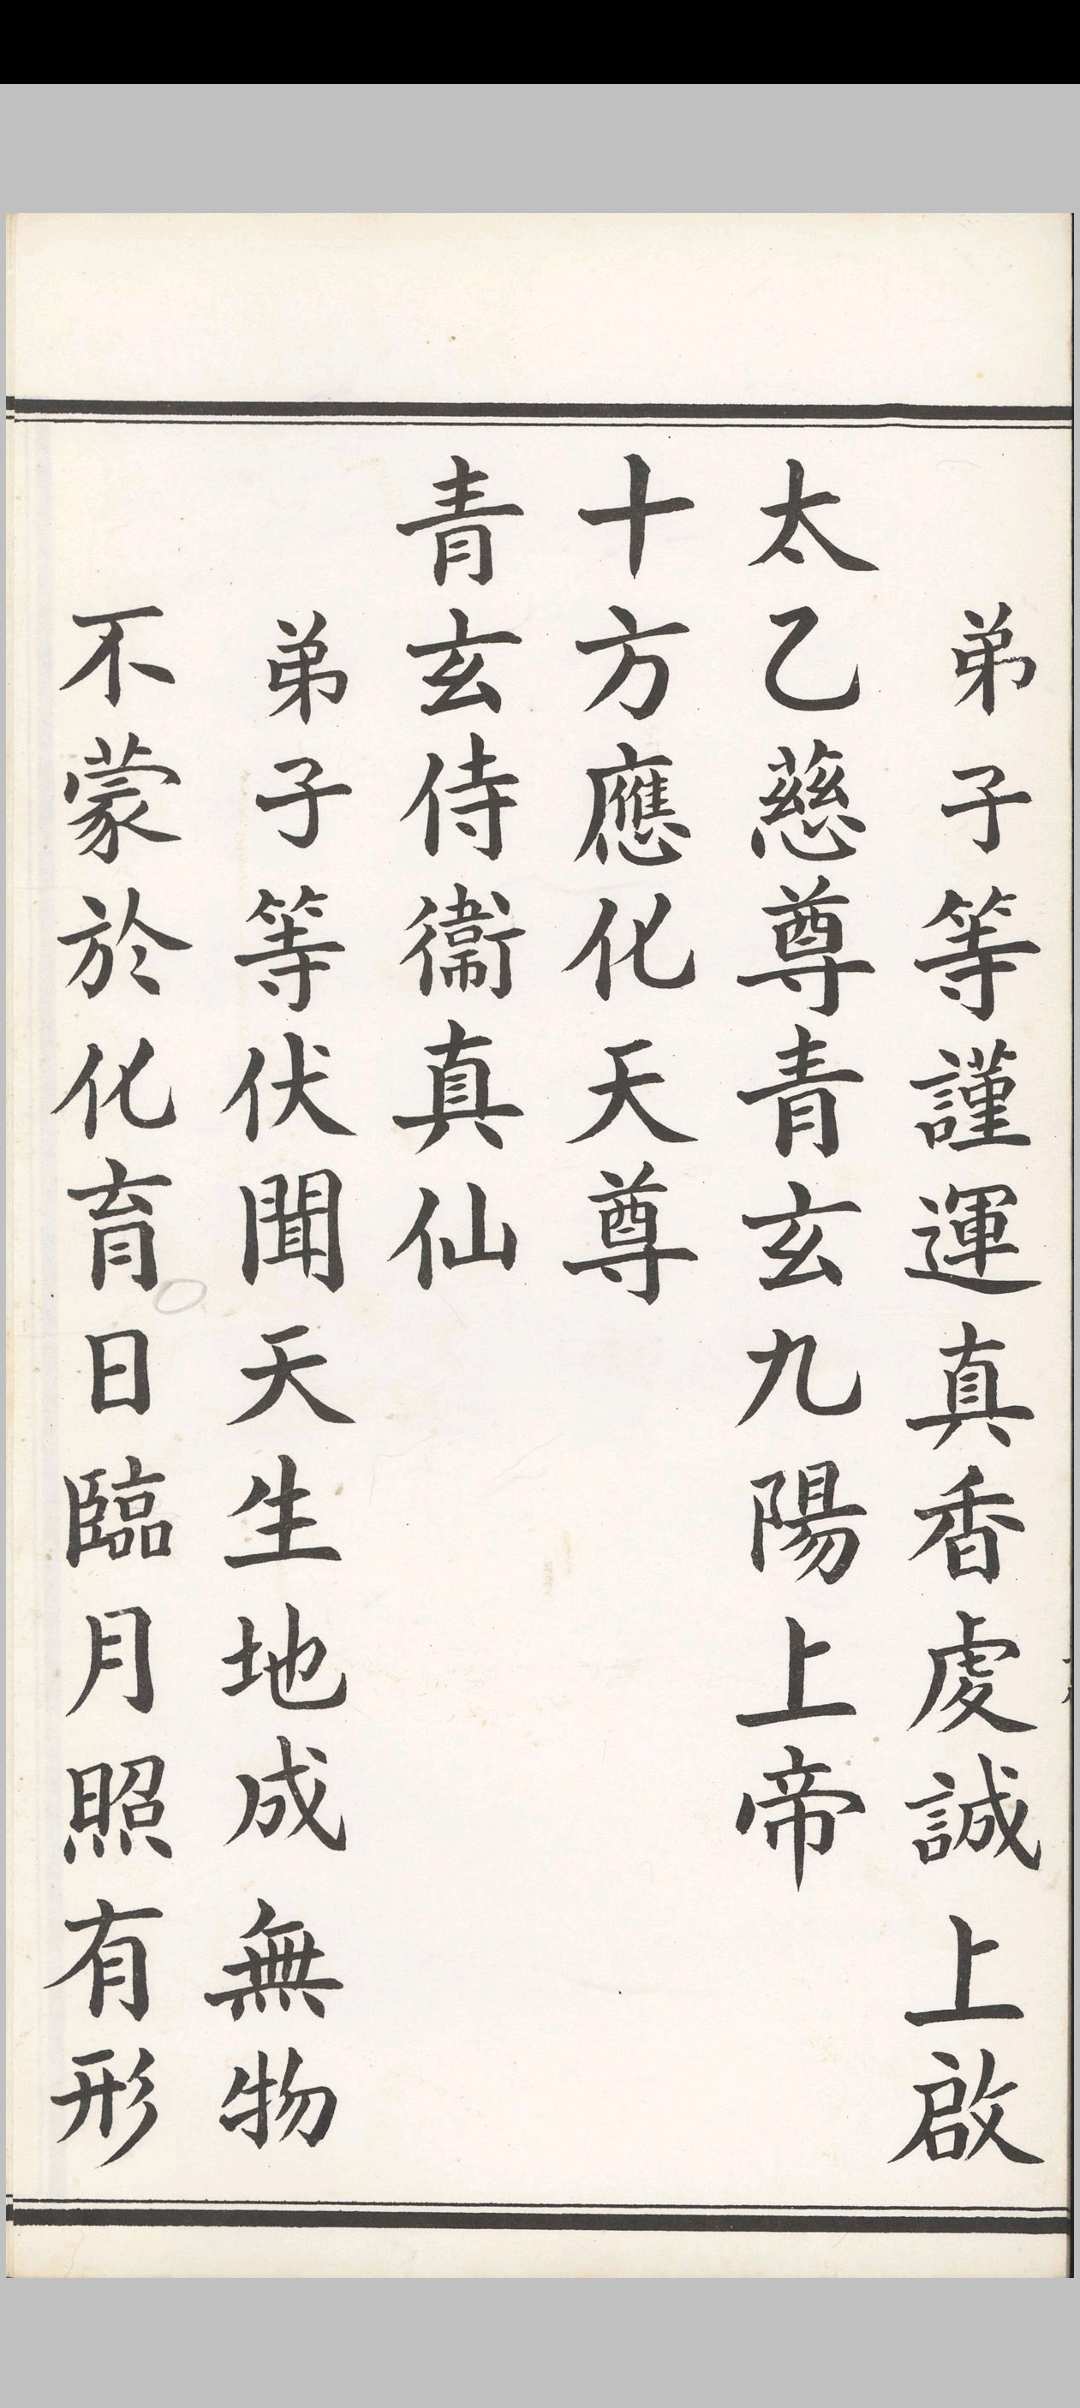 弟子等謹運真香虔誠上啟
太乙慈尊青玄九陽上帝
十方應化天尊
青玄侍衞真仙
弟子等伏聞天生地成無物
不蒙於化育日臨月照有形